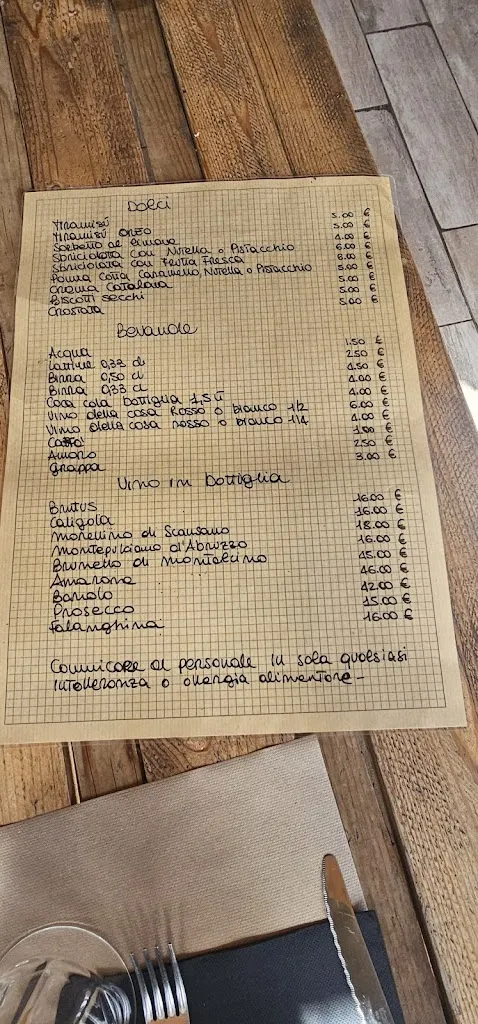 Dolci
Tiramisú 5.00 €
Tiramisú orzo 5.00 €
Sorbetto al limone 4.00 €
Sbriciolata con Nutella o Pistacchio 6.00 €
Sbriciolata con Frutta Fresca 6.00 €
Panna cotta Caramello, Nutella o Pistacchio 5.00 €
Crema Catalana 5.00 €
Biscotti secchi 5.00 €
Crostata 5.00 €
Bevande
Acqua 1.50 €
Lattine 0,33 cl 2.50 €
Birra 0,50 cl 4.50 €
Birra 0,33 cl 4.00 €
Coca cola bottiglia 1,5 lt 4.00 €
Vino della casa Rosso o bianco 1/2 6.00 €
Vino della casa rosso o bianco 1/4 4.00 €
Caffé 1.00 €
Amaro 2.50 €
Grappa 3.00 €
Vino in bottiglia
Brutus 16.00 €
Caligola 16.00 €
Morellino di Scansano 18.00 €
Montepulciano d'Abruzzo 16.00 €
Brunello di Montalcino 45.00 €
Amarone 46.00 €
Barolo 42.00 €
Prosecco 15.00 €
Falanghina 16.00 €
Comunicare al personale in sala qualsiasi
intolleranza o allergia alimentare -